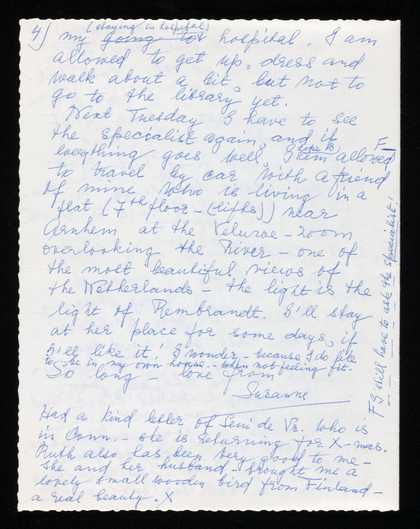 4)
(staying in hospital)
my going to hospital. I am
allowed to get up, dress and
walk about a bit, but not to
go to the library yet.
Next Tuesday I have to see
the specialist again, and if
(hope to)
everything goes well, I am allowed
to travel by car with a friend
of mine who is living in a
flat (7th floor - (lifts)) near
Arnhem at the Veluwe-zoom
overlooking the River - one of
the most beautiful views of
the Netherlands - the light is the
light of Rembrandt. I'll stay
at her place for some days, if
I'll like it! I wonder - because I do like
to be in my own house - when not feeling fit.
So long - love from
Susanne
Had a kind letter of Semi de Vs. who is
in Conn - she is returning for X-mas.
Ruth also has been very good to me -
She and her husband - brought me a
lovely small wooden bird from Finland -
a real beauty. X
F
F I still have to ask the specialist!